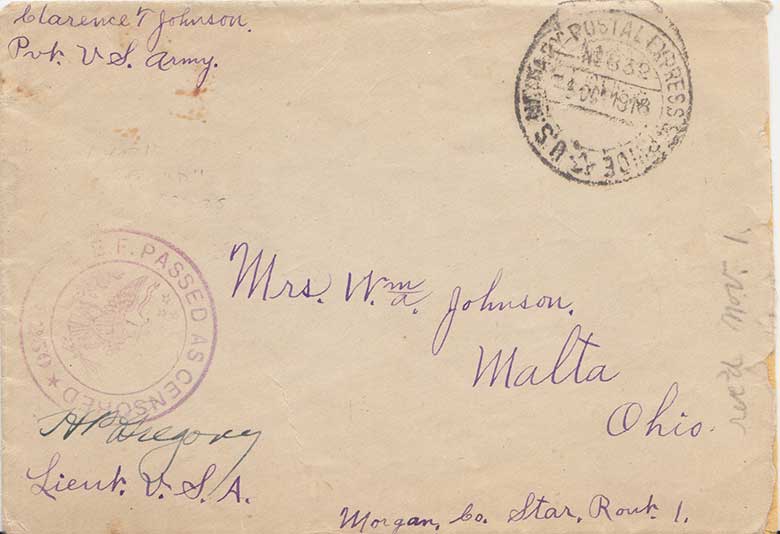 Clarence F Johnson.
Pvt. U S. Army.
U.S. MILITARY POSTAL EXPRESS SERVICE
No 832
OCT 1918
E. F. PASSED AS CENSORED
Mrs. Wm A. Johnson.
Malta
Ohio.
rec'd Nov. 1,
H P Gregory
Lieut. U. S. A.
Morgan, Co. Star, Rout 1.